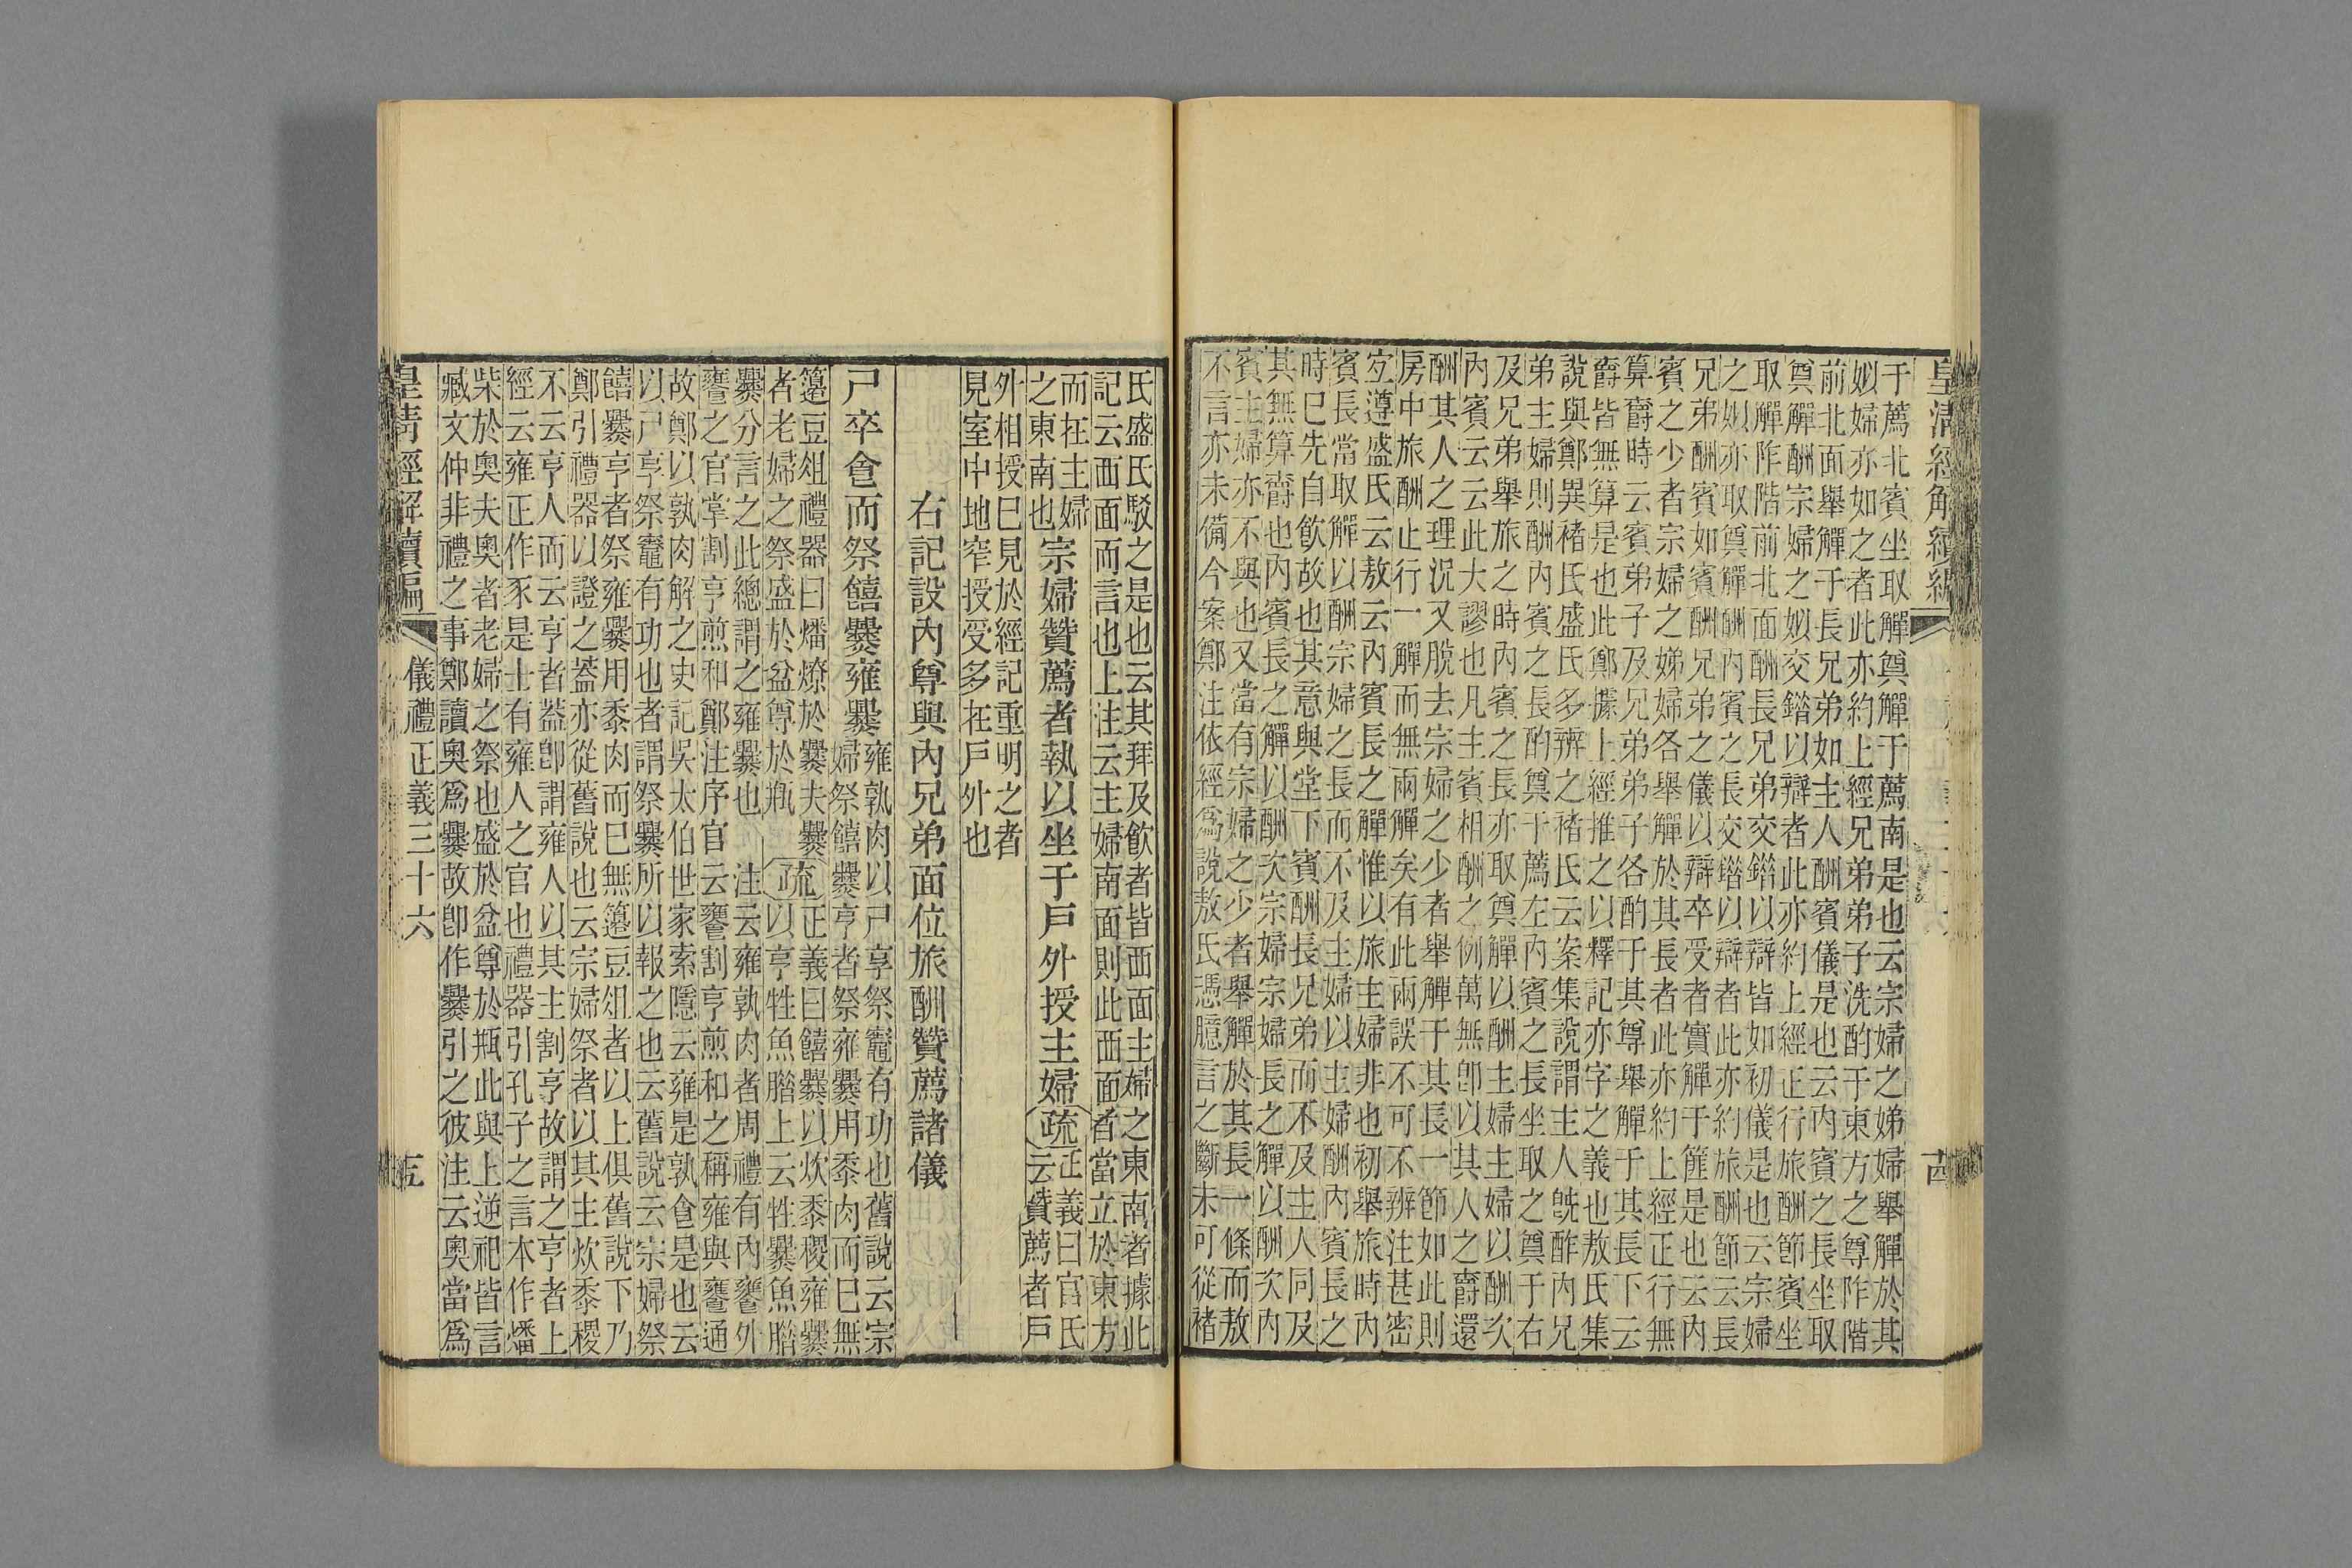 于薦北賓坐取觶奠觶于薦南是也云宗婦之娣婦舉觶於其
姒婦亦如之者此亦約上經兄弟弟子洗酌于東方之尊阼階
前北面舉觶于長兄弟如主人酬賓儀是也云內賓之長坐取
奠觶酬宗婦之姒交錯以辯者此亦約上經正行旅酬節賓坐
取觶阼階前北面酬長兄弟交錯以辯皆如初儀是也云宗婦
之姒亦取奠觶酬內賓之長交錯以辯者此亦約旅酬節云長
兄弟酬賓如賓酬兄弟之儀以辯卒受者實觶于篚是也云內
賓之少者宗婦之娣婦各舉觶於其長者此亦約上經正行無
算爵時云賓弟子及兄弟弟子各酌于其尊舉觶于其長下云
爵皆無算是也此鄭據上經推之以釋記亦字之義也敖氏集
說與鄭異褚氏盛氏多辨之褚氏云案集說謂主人旣酢內兄
弟主婦則酬內賓之長酌奠于薦左內賓之長坐取之奠于右
及兄弟舉旅之時內賓之長亦取奠觶以酬主婦主婦以酬次
內賓云云此大謬也凡主賓相酬之例萬無卽以其人之爵還
酬其人之理況又脫去宗婦之少者舉觶于其長一節如此則
房中旅酬止行一觶而無兩觶矣有此兩誤不可不辨注甚密
宐遵盛氏云敖云內賓長之觶惟以旅主婦非也初舉旅時內
賓長常取觶以酬宗婦之長而不及主婦以主婦酬內賓長之
時已先自飲故也其意與堂下賓酬長兄弟而不及主人同及
其無算爵也內賓長之觶以酬次宗婦宗婦長之觶以酬次內
賓主婦亦不與也又當有宗婦之少者舉觶於其長一條而敖
不言亦未備今案鄭注依經爲說敖氏憑臆言之斷未可從褚
氏盛氏駁之是也云其拜及飲者皆西面主婦之東南者據此
記云西面而言也上注云主婦南面則此西面者當立於東方
而在主婦
之東南也
宗婦贊薦者執以坐于戶外授主婦
疏
正義曰官氏
云贊薦者戶
外相授已見於經記重明之者
見室中地窄授受多在戶外也
右記設內尊與內兄弟面位旅酬贊薦諸儀
尸卒食而祭饎爨雍爨
雍孰肉以尸享祭竈有功也舊說云宗
婦祭饎爨亨者祭雍爨用黍肉而已無
籩豆俎禮器曰燔燎於爨夫爨
者老婦之祭盛於盆尊於甁
疏
正義曰饎爨以炊黍稷雍爨
以亨牲魚腊上云牲爨魚腊
爨分言之此總謂之雍爨也 注云雍孰肉者周禮有內饔外
饔之官掌割亨煎和鄭注序官云饔割亨煎和之稱雍與饔通
故鄭以孰肉解之史記吳太伯世家索隱云雍是孰食是也云
以尸享祭竈有功也者謂祭爨所以報之也云舊說云宗婦祭
饎爨亨者祭雍爨用黍肉而已無籩豆俎者以上俱舊說下乃
鄭引禮器以證之蓋亦從舊說也云宗婦祭者以其主炊黍稷
不云亨人而云亨者蓋卽謂雍人以其主割亨故謂之亨者上
經云雍正作豕是士有雍人之官也禮器引孔子之言本作燔
柴於奧夫奧者老婦之祭也盛於盆尊於瓶此與上逆祀皆言
臧文仲非禮之事鄭讀奧爲爨故卽作爨引之彼注云奧當爲
皇清經解續編 儀禮正義三十六